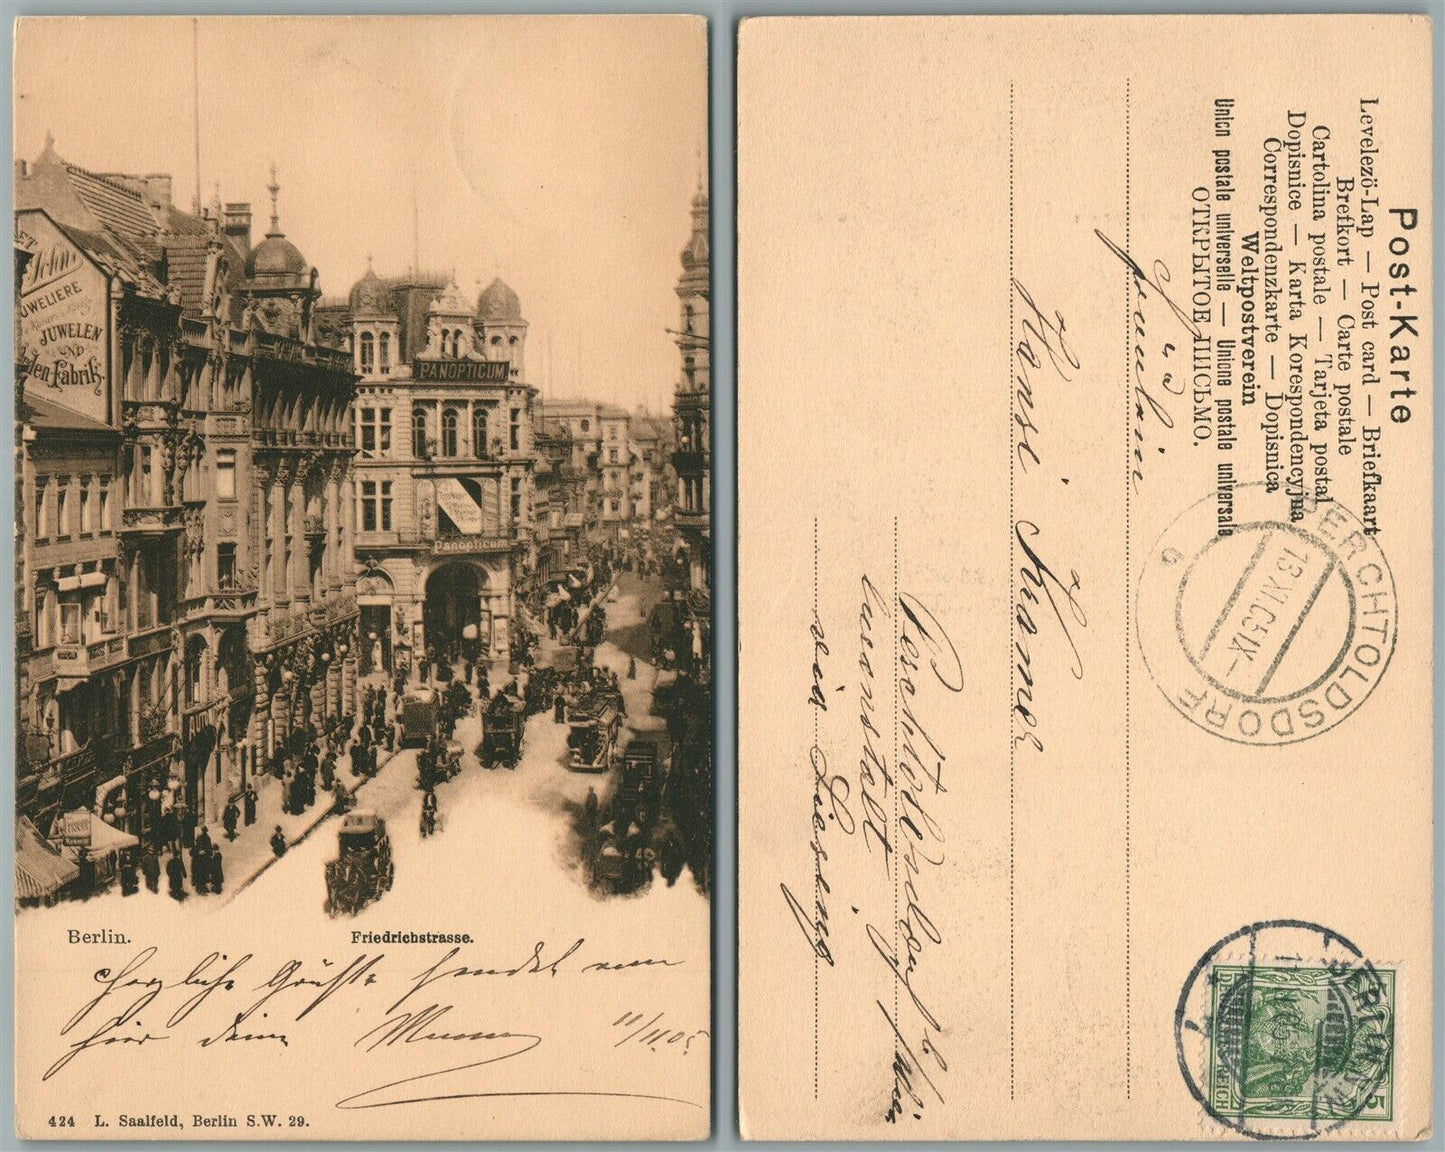 JUWELIERE
JUWELEN
UND
Fabrik
PANOPTICUM
Panopticum
Berlin.
Friedrichstrasse.
Herzliche Grüsse sendet von
hier deine
11/11.05
424 L. Saalfeld, Berlin S.W. 29.
Post-Karte
Levelező-Lap — Post card — Briefkaart
Brefkort — Carte postale
Cartolina postale — Tarjeta postal
Dopisnice — Karta Korespondencyjna
Correspondenzkarte — Dopisnica
Weltpostverein
Union postale universelle — Unione postale universale
ОТКРЫТОЕ ПИСЬМО.
Fräulein
Hansi Kramer
Perchtoldsdorf b/Wien
via Liesing
PERCHTOLDSDORF
13.XI.05.IX-
BERLIN
DEUTSCHES REICH
5